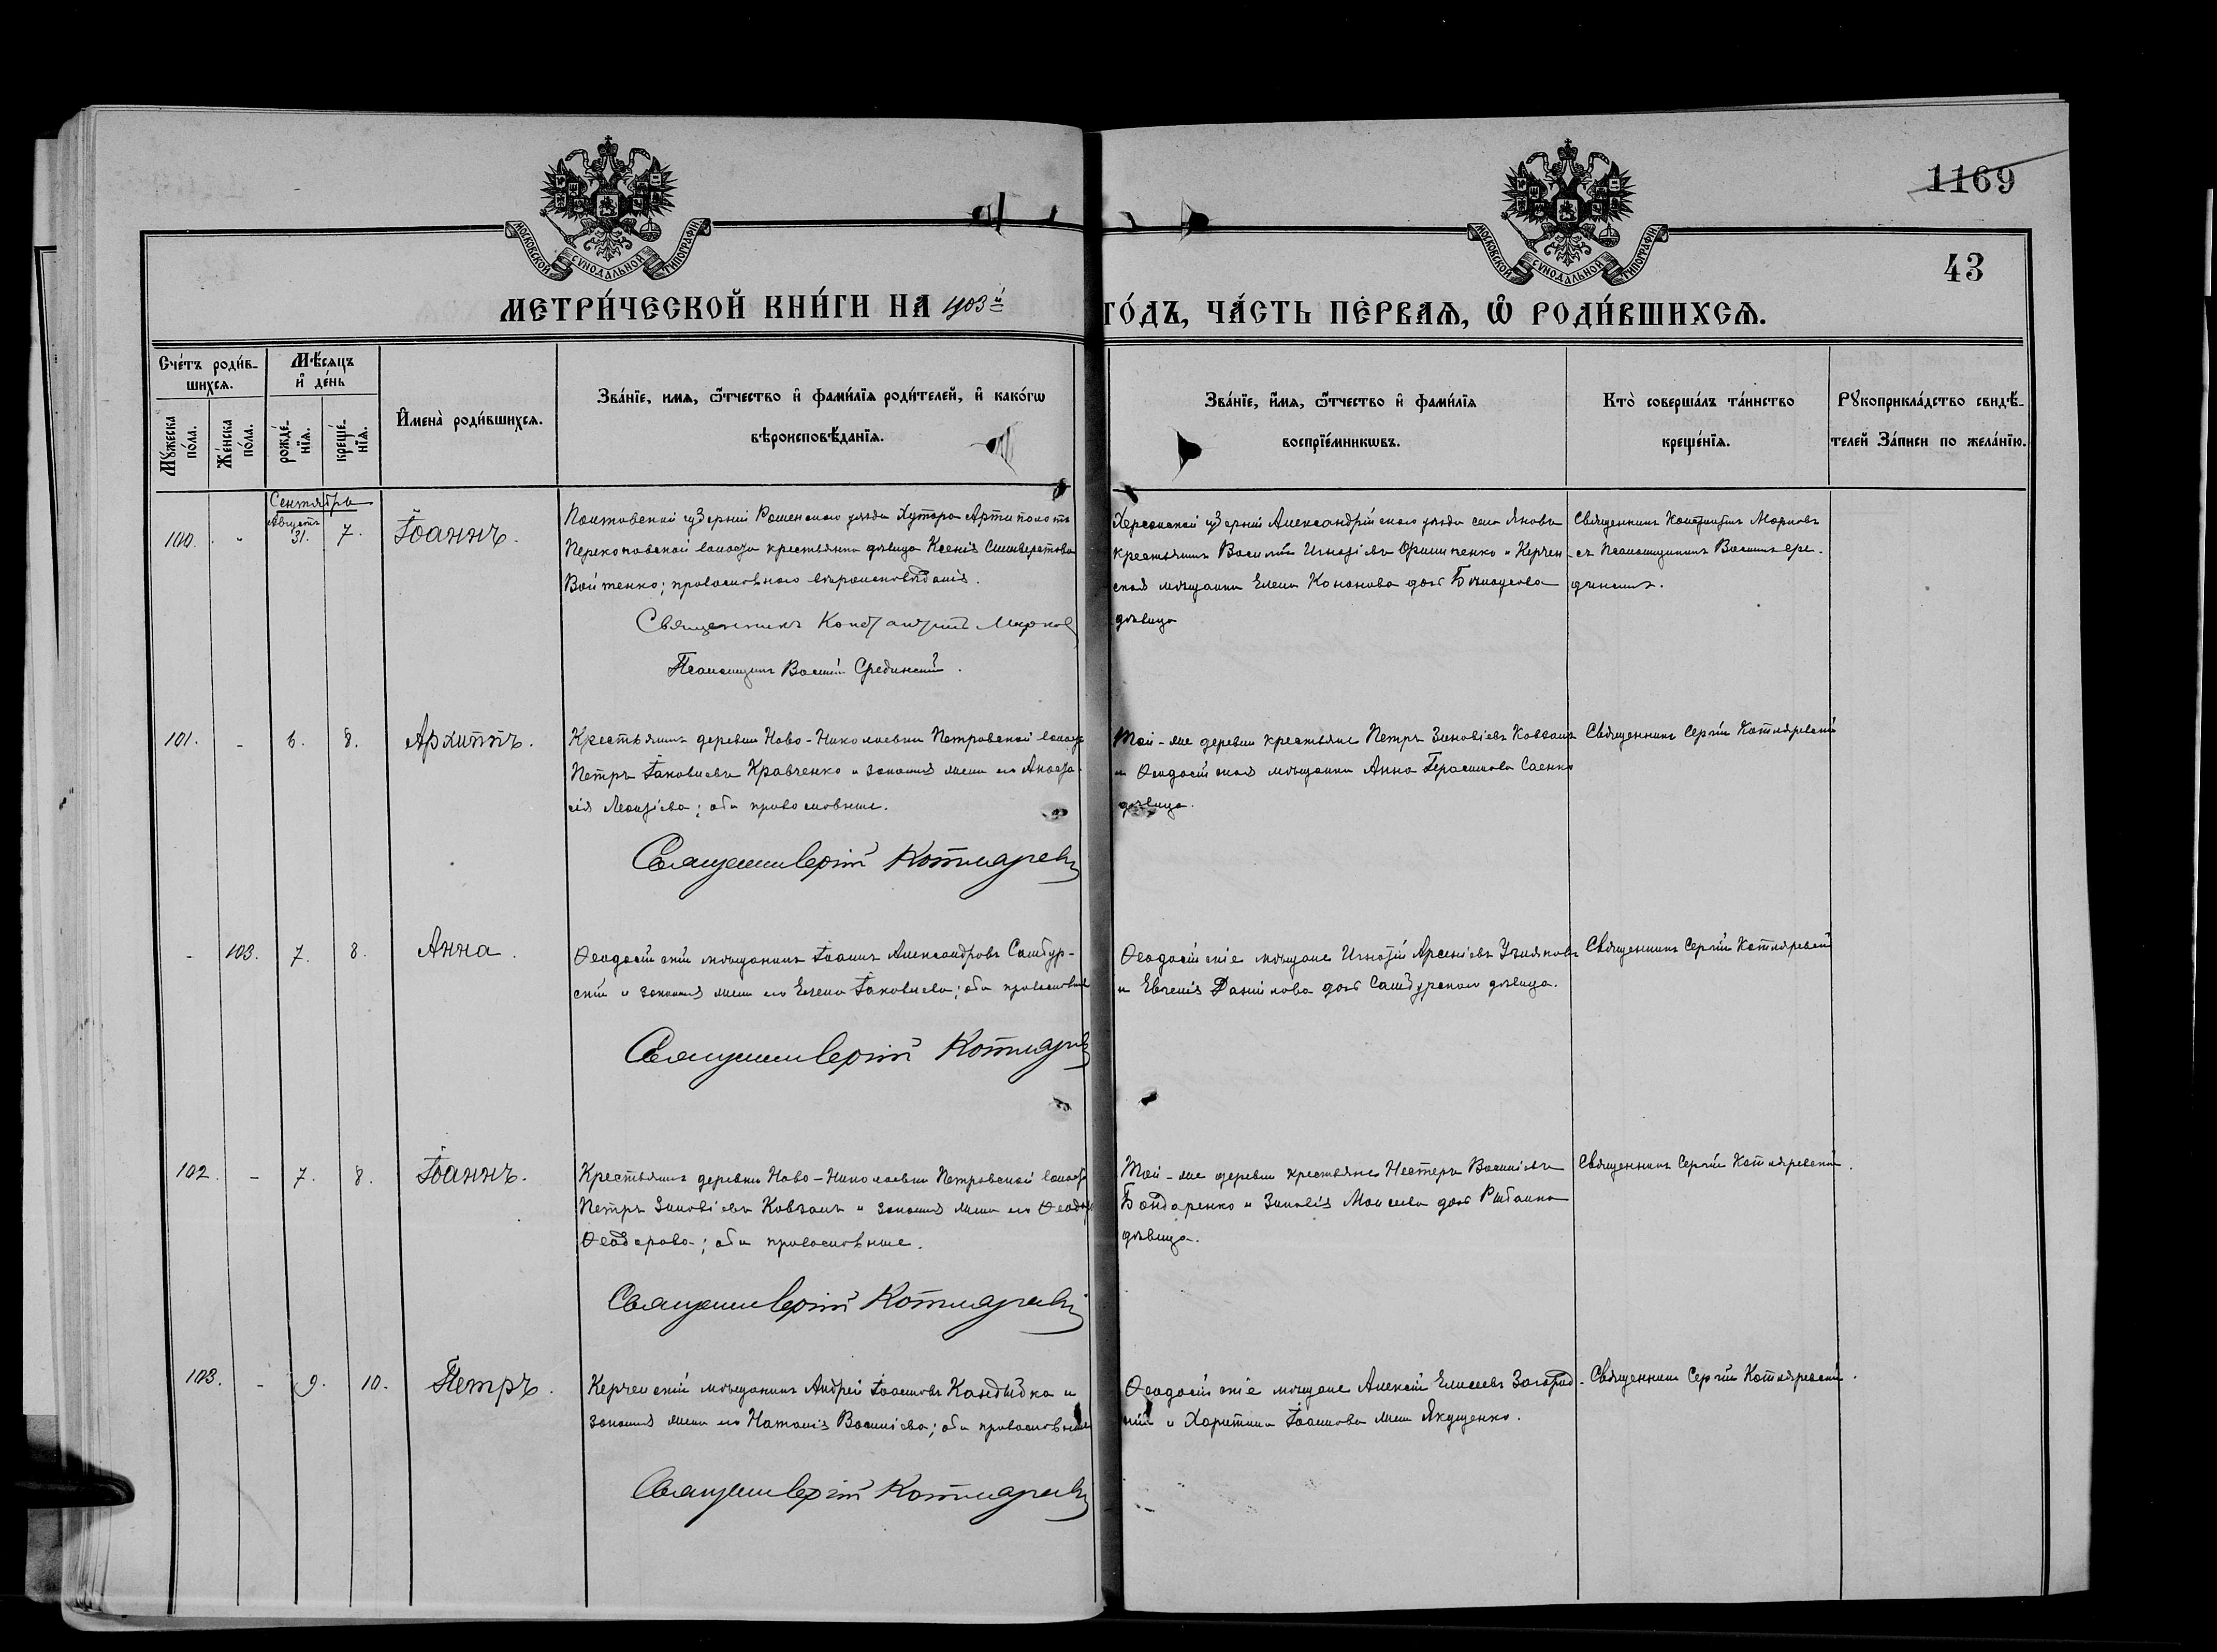 МОСКОВСКОЙ СУНОДАЛЬНОЙ ТИПОГРАФІИ
МОСКОВСКОЙ СУНОДАЛЬНОЙ ТИПОГРАФІИ
1169
43
МЕТРИ́ЧЕСКОЙ КНИ́ГИ НА 1903й ГО́ДЪ, ЧА́СТЬ ПЕ́РВАѦ, Ѡ РОДИ́ВШИХСѦ.
Сче́тъ роди́в-
шихсѧ.
Мꙋ́жеска по́ла.
Же́нска по́ла.
Мѣ́сѧцъ и де́нь
рожде́-нїѧ.
креще́-нїѧ.
Имена̀ роди́вшихсѧ.
Зва́нїе, имѧ, ѻтчество и фами́лїѧ роди́телей, и како́гѡ
вѣроисповѣ́данїѧ.
Зва́нїе, и́мѧ, ѻтчество и фами́лїѧ
воспрїе́мникѡвъ.
Кто̀ соверша́лъ та́инство
креще́нїѧ.
Рꙋкоприкла́дство свидѣ́-
телей За́писи по жела́нїю.
Сентябрь
100. - Августа 31. 7. Іоаннъ.
Полтавской губерніи Роменскаго уѣзда Хутора Артополотъ
Перекоповской волости крестьянка дѣвица Ксенія Сильверстова
Войтенко; православнаго вѣроисповѣданія.
Священникъ Константинъ Марков
Псаломщикъ Василій Срединскій.
Херсонской губерніи Александрійскаго уѣзда села Янова
крестьянинъ Василій Игнатіевъ Филипенко и Керчен-
ская мѣщанка Елена Кононова дочь
дѣвица
Священникъ Константинъ Марковъ
съ Псаломщикомъ Василіемъ Сре-
динскимъ.
101. - 6. 8. Архиппъ.
Крестьянинъ деревни Ново-Николаевки Петровской волости
Петръ Іаковлевъ Кравченко и законная жена его Анаста-
сія Леонтіева; оба православные.
Священникъ Сергій Котляревскі
Той-же деревни крестьяне Петръ Зиновіевъ Ковзанъ
и Ѳеодосійская мѣщанка Анна Герасимова Саенко
дѣвица.
Священникъ Сергій Котляревскій
- 103. 7. 8. Анна.
Ѳеодосійскій мѣщанинъ Іоаннъ Александровъ Самбур-
скій и законная жена его Елена Іаковлева; оба православные
Священникъ Сергій Котляревс
Ѳеодосійскіе мѣщане Игнатій Арсеніевъ
и Евгенія Данилова дочь Самбурская дѣвица.
Священникъ Сергій Котляревскій
102. - 7. 8. Іоаннъ.
Крестьянинъ деревни Ново-Николаевки Петровской волости
Петръ Зиновіевъ Ковзанъ и законная жена его
Ѳеодорова; оба православные.
Священникъ Сергій Котляревскі
Той-же деревни крестьяне Нестеръ Василіевъ
Бондаренко и Зиновія Моисеева дочь
дѣвица.
Священникъ Сергій Котляревскій.
103. - 9. 10. Петръ.
Керченскій мѣщанинъ Андрей Іоанновъ Кандыбка и
законная жена его Наталія Василіева; оба православные
Священникъ Сергій Котляревскі
Ѳеодосійскіе мѣщане Алексій Елисеевъ
и Харитина Іоаннова жена Якущенко.
Священникъ Сергій Котляревскій.